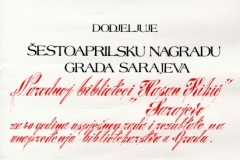 DODJELJUJE
ŠESTOAPRILSKU NAGRADU
GRADA SARAJEVA
Narodnoj biblioteci "Hasan Kikić"
Sarajevo
za 40 godina uspješnog rada i rezultate na
unapređenju bibliotekarstva u Gradu.